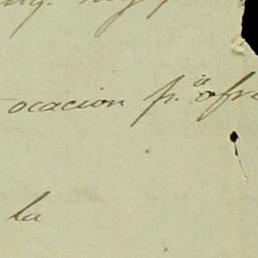 ocacion p.ª ofre
la